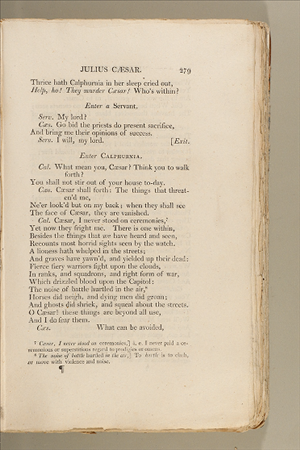 JULIUS CÆSAR. 279
Thrice hath Calphurnia in her sleep cried out,
Help, ho! They murder Cæsar! Who's within?
Enter a Servant.
Serv. My lord?
Cæs. Go bid the priests do present sacrifice,
And bring me their opinions of success.
Serv. I will, my lord. [Exit.
Enter CALPHURNIA.
Cal. What mean you, Cæsar? Think you to walk
forth?
You shall not stir out of your house to-day.
Cæs. Cæsar shall forth: The things that threat-
en'd me,
Ne'er look'd but on my back; when they shall see
The face of Cæsar, they are vanished.
Cal. Cæsar, I never stood on ceremonies,7
Yet now they fright me. There is one within,
Besides the things that we have heard and seen,
Recounts most horrid sights seen by the watch.
A lioness hath whelped in the streets;
And graves have yawn'd, and yielded up their dead:
Fierce fiery warriors fight upon the clouds,
In ranks, and squadrons, and right form of war,
Which drizzled blood upon the Capitol:
The noise of battle hurtled in the air,8
Horses did neigh, and dying men did groan;
And ghosts did shriek, and squeal about the streets.
O Cæsar! these things are beyond all use,
And I do fear them.
Cæs. What can be avoided,
7 Cæsar, I never stood on ceremonies,] i. e. I never paid a ce-
remonious or superstitious regard to prodigies or omens.
8 The noise of battle hurtled in the air,] To hurtle is to clash,
or move with violence and noise.
¶